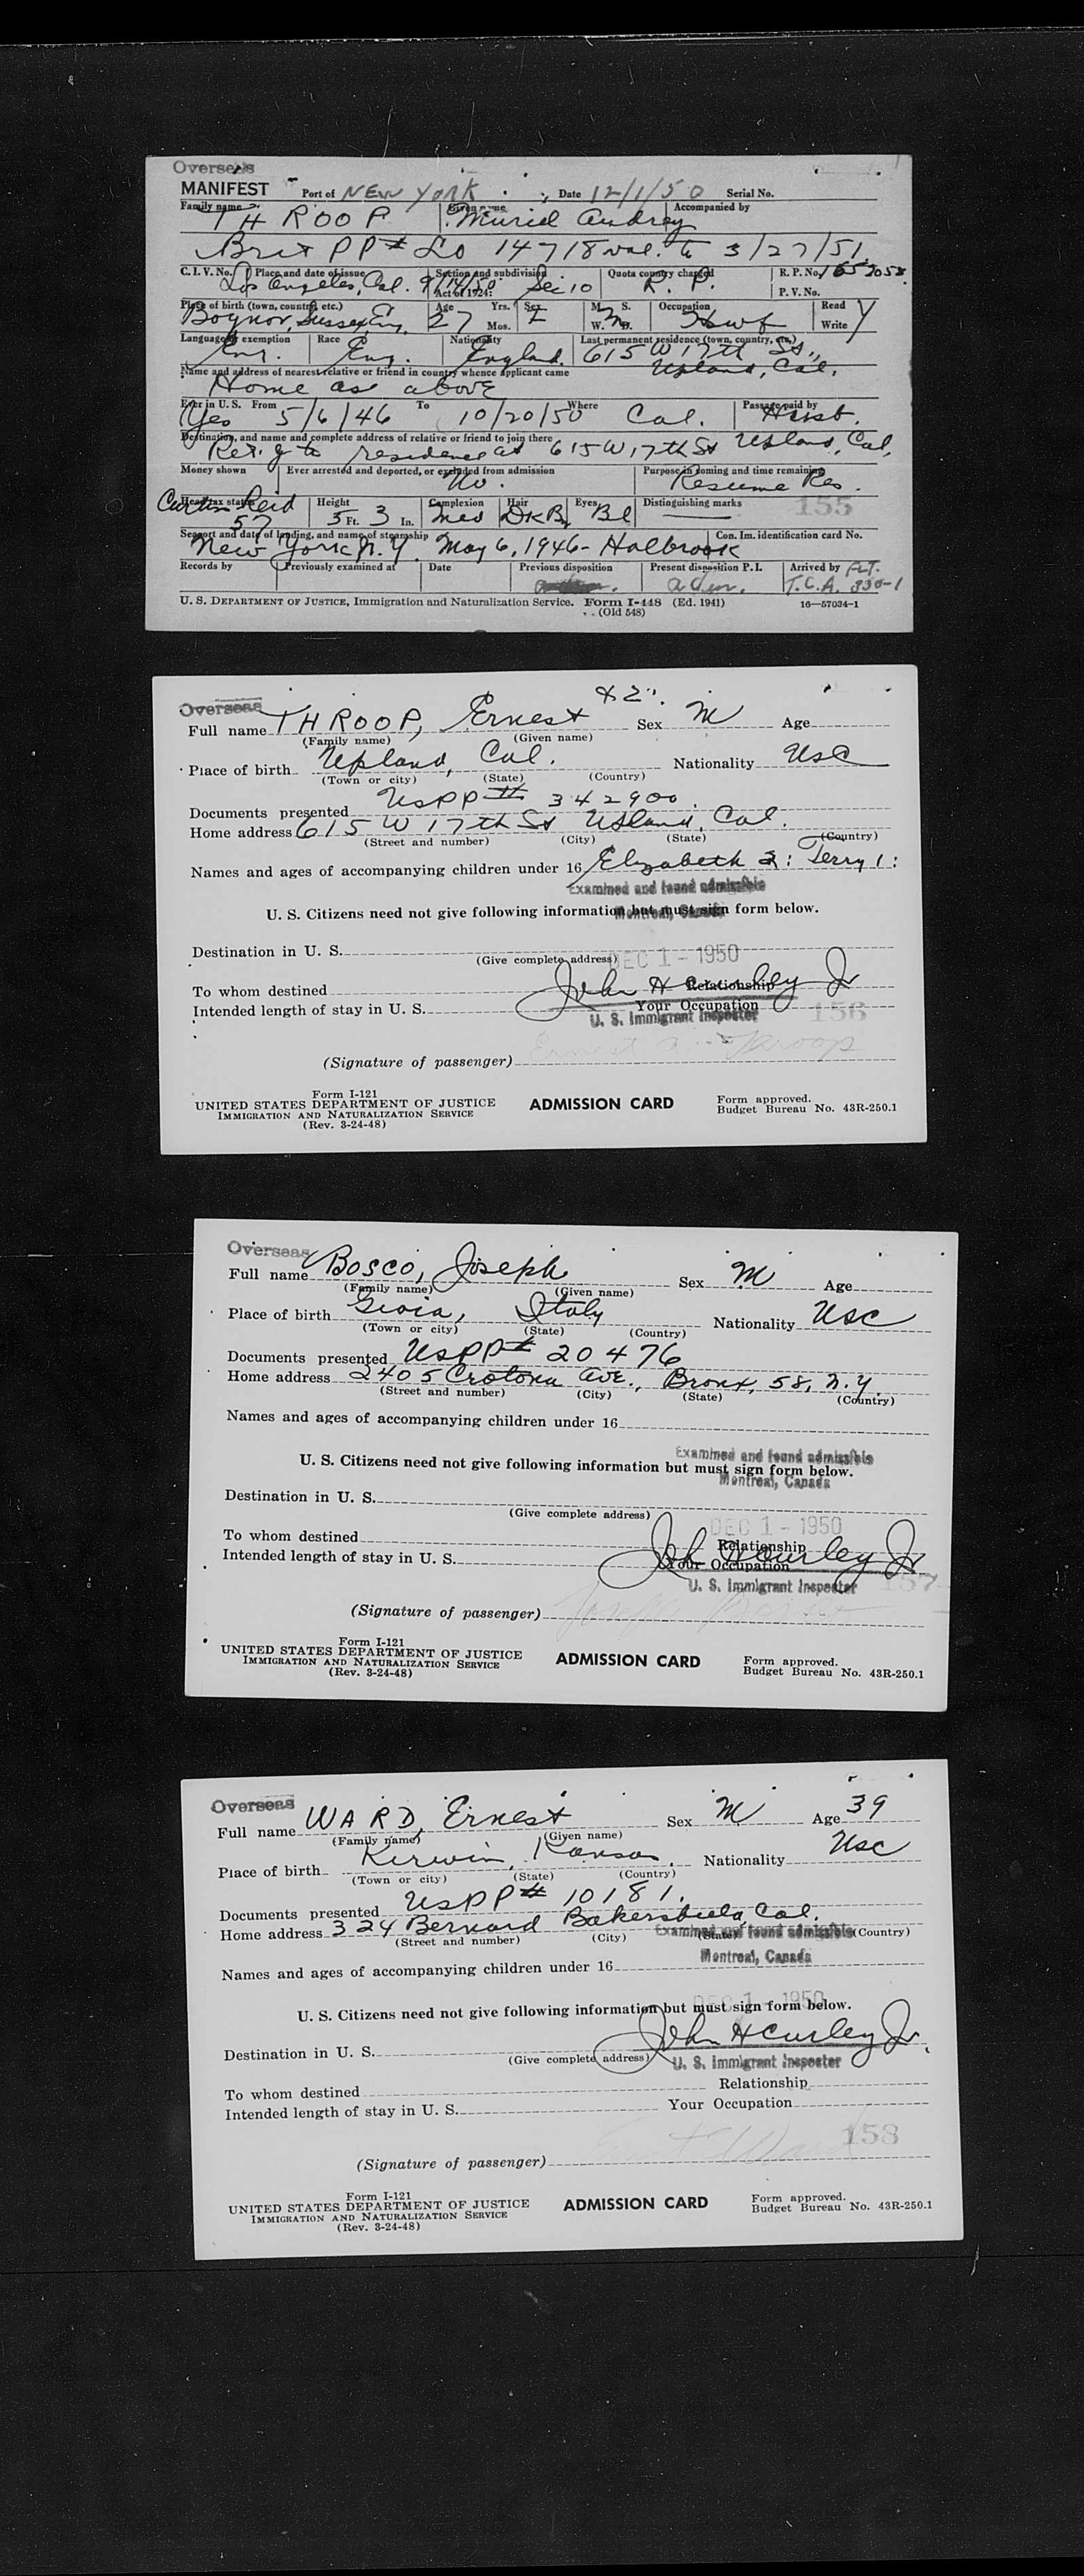 Overseas
MANIFEST Port of NEW YORK Date 12/1/50 Serial No.
Family name Given name Accompanied by
THROOP Muriel Audrey
Brit PP# LO 14718 val. to 3/27/51
C. I. V. No. Place and date of issue Section and subdivision Act of 1924: Quota country charged R. P. No.
Los Angeles, Cal. 9/14/50 Sec 10 R. P.
P. V. No.
Place of birth (town, country, etc.) Age Yrs. Mos. Sex M. S. W. D. Occupation Read Write
Boynor, Sussex, Eng. 27 F M Hswf Y
Language or exemption Race Nationality Last permanent residence (town, country, etc.)
Eng. Eng. England 615 W 17th St.,
Upland, Cal.
Name and address of nearest relative or friend in country whence applicant came
Home as above
Ever in U. S. From To Where Passage paid by
Yes 5/6/46 10/20/50 Cal. Husb.
Destination, and name and complete address of relative or friend to join there
Ret.g to residence at 615 W 17th St Upland, Cal.
Money shown Ever arrested and deported, or excluded from admission Purpose in coming and time remaining
No. Resume Res.
Head tax status Height Ft. In. Complexion Hair Eyes Distinguishing marks
Curtin-Reid 57 5 3 Med DkBr Bl — 155
Seaport and date of landing, and name of steamship Con. Im. identification card No.
New York N.Y. May 6, 1946 - Holbrook
Records by Previously examined at Date Previous disposition Present disposition P. I. Arrived by FLT.
adm. T.C.A. 330-1
U. S. DEPARTMENT OF JUSTICE, Immigration and Naturalization Service. Form I-448 (Ed. 1941) 16—57034-1
(Old 548)
Overseas
& 2.
Full name THROOP, Ernest Sex M Age
(Family name) (Given name)
Place of birth Upland, Cal. Nationality USC
(Town or city) (State) (Country)
Documents presented USPP# 342900.
Home address 615 W 17th St Upland, Cal.
(Street and number) (City) (State) (Country)
Names and ages of accompanying children under 16 Elizabeth 2: Terry 1:
Examined and found admissible
U. S. Citizens need not give following information but must sign form below.
Montreal, Canada
Destination in U. S.
(Give complete address)
DEC 1 - 1950
John H Curley Jr
To whom destined Relationship
Intended length of stay in U. S. Your Occupation
U. S. Immigrant Inspector 156
(Signature of passenger) Ernest Throop
Form I-121
UNITED STATES DEPARTMENT OF JUSTICE
IMMIGRATION AND NATURALIZATION SERVICE
(Rev. 3-24-48)
ADMISSION CARD
Form approved.
Budget Bureau No. 43R-250.1
Overseas
Full name BOSCO, Joseph Sex M Age
(Family name) (Given name)
Place of birth Gioia, Italy Nationality USC
(Town or city) (State) (Country)
Documents presented USPP# 20476
Home address 2405 Crotona Ave., Bronx, 58, N.Y.
(Street and number) (City) (State) (Country)
Names and ages of accompanying children under 16
Examined and found admissible
U. S. Citizens need not give following information but must sign form below.
Montreal, Canada
Destination in U. S.
(Give complete address)
DEC 1 - 1950
John H Curley Jr
To whom destined Relationship
Intended length of stay in U. S. Your Occupation
U. S. Immigrant Inspector 157
(Signature of passenger)
Form I-121
UNITED STATES DEPARTMENT OF JUSTICE
IMMIGRATION AND NATURALIZATION SERVICE
(Rev. 3-24-48)
ADMISSION CARD
Form approved.
Budget Bureau No. 43R-250.1
Overseas
Full name WARD, Ernest Sex M Age 39
(Family name) (Given name)
Place of birth Kirwin, Kansas. Nationality USC
(Town or city) (State) (Country)
Documents presented USPP# 10181.
Home address 324 Bernard Bakersfield, Cal.
(Street and number) (City) (State) (Country)
Examined and found admissible
Montreal, Canada
Names and ages of accompanying children under 16
DEC 1 - 1950
U. S. Citizens need not give following information but must sign form below.
John H Curley Jr.
Destination in U. S.
(Give complete address)
U. S. Immigrant Inspector
To whom destined Relationship
Intended length of stay in U. S. Your Occupation
158
(Signature of passenger)
Form I-121
UNITED STATES DEPARTMENT OF JUSTICE
IMMIGRATION AND NATURALIZATION SERVICE
(Rev. 3-24-48)
ADMISSION CARD
Form approved.
Budget Bureau No. 43R-250.1